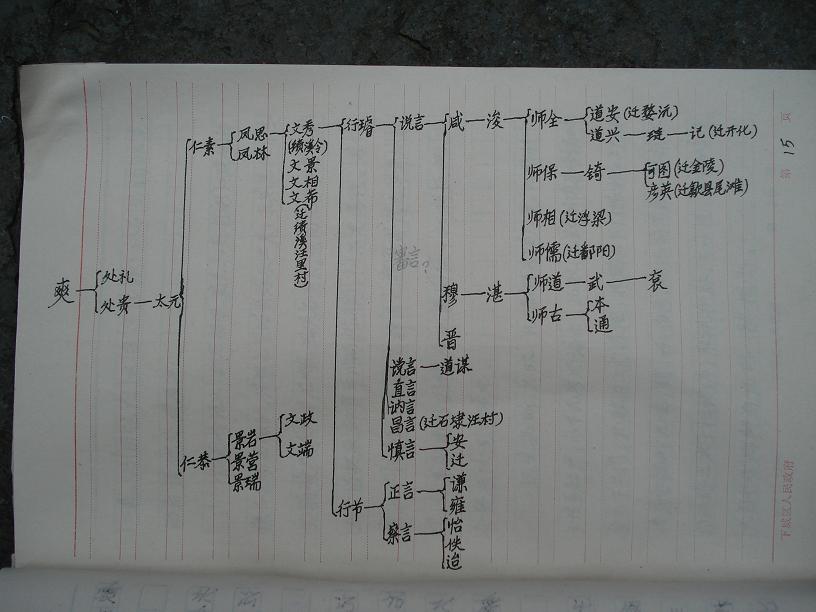 第 15 页
爽
处礼
处贵
太元
仁素
仁恭
风思
风林
文秀
(绩溪令)
文景
文相
文希
(迁绩溪汪里村)
景岩
景营
景瑞
文政
文端
行璿
行节
说言
咸
浚
师全
道安(迁婺沅)
道兴
琁
记(迁开化)
师保
锜
可图(迁金陵)
彦英(迁歙县尾滩)
师相(迁浮梁)
师儒(迁鄱阳)
穆
湛
师道
武
衮
师古
本
通
晋
谠言
道谋
直言
讷言
昌言(迁石埭汪村)
慎言
安
迁
正言
谦
雍
察言
怡
佚
迨
下城区人民政府